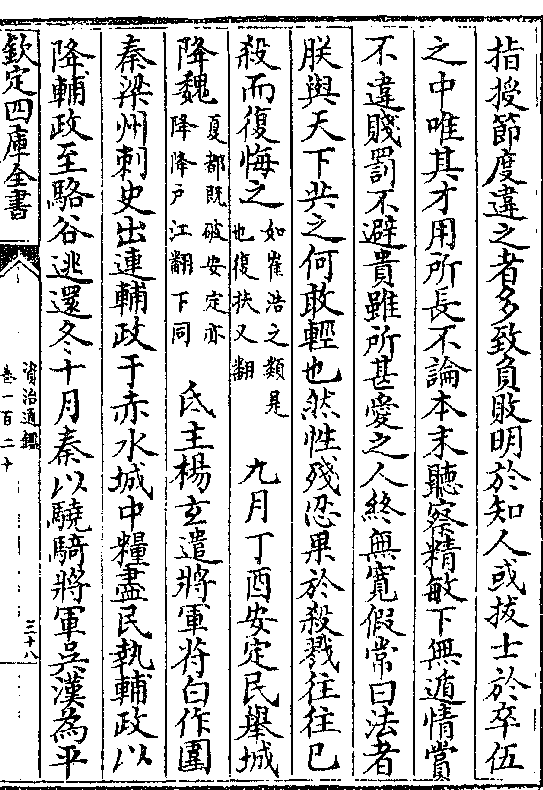 指授節度違之者多致負敗明於知人或拔士於卒伍
之中唯其才用所長不論本末聽察精敏下無遁情賞
不違賤罰不避貴雖所甚愛之人終無寬假常曰法者
朕與天下共之何敢輕也然性殘忍果於殺戮往往已
殺而復悔之如崔浩之類是也復扶又翻 九月丁酉安定民舉城
降魏夏都既破安定亦降降戶江翻下同 氐主楊玄遣將軍苻白作圍
秦梁州刺史出連輔政于赤水城中糧盡民執輔政以
降輔政至駱谷逃還冬十月秦以驍騎將軍吳漢為平
欽定四庫全書
資治通鑑
卷一百二十
三十八